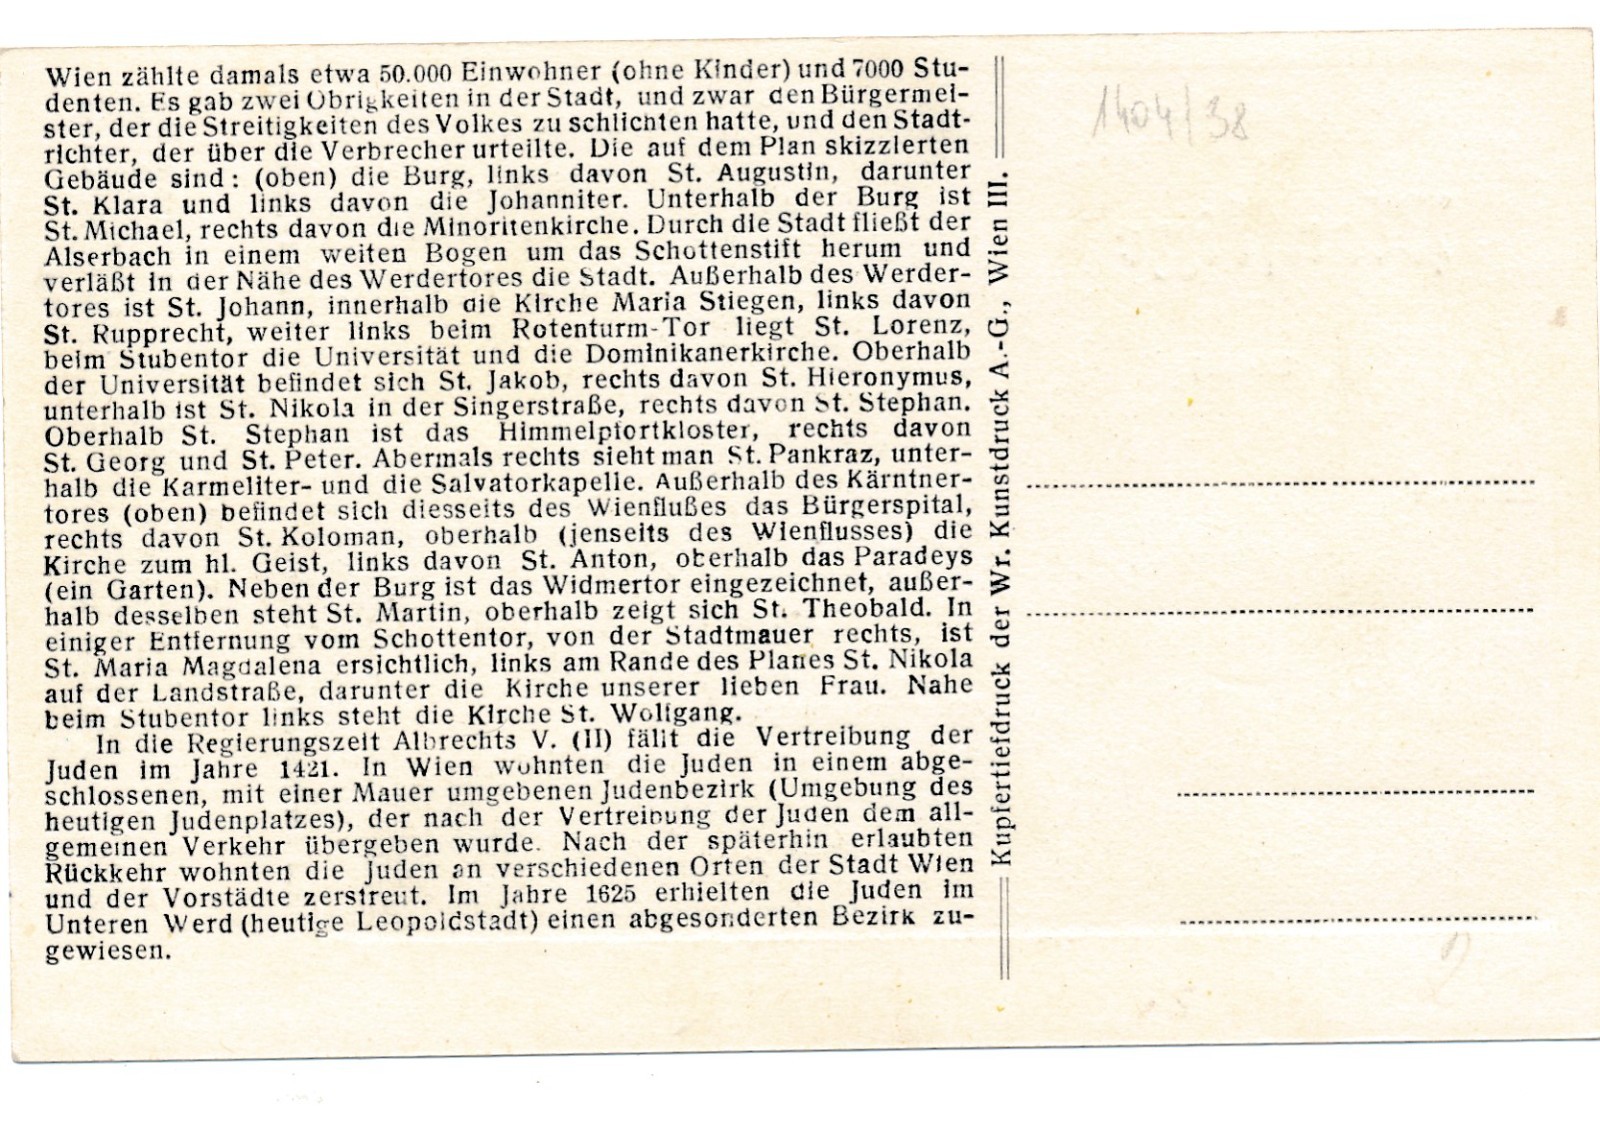 Wien zählte damals etwa 50.000 Einwohner (ohne Kinder) und 7000 Stu-
denten. Es gab zwei Obrigkeiten in der Stadt, und zwar den Bürgermei-
ster, der die Streitigkeiten des Volkes zu schlichten hatte, und den Stadt-
richter, der über die Verbrecher urteilte. Die auf dem Plan skizzierten
Gebäude sind: (oben) die Burg, links davon St. Augustin, darunter
St. Klara und links davon die Johanniter. Unterhalb der Burg ist
St. Michael, rechts davon die Minoritenkirche. Durch die Stadt fließt der
Alserbach in einem weiten Bogen um das Schottenstift herum und
verläßt in der Nähe des Werdertores die Stadt. Außerhalb des Werder-
tores ist St. Johann, innerhalb die Kirche Maria Stiegen, links davon
St. Rupprecht, weiter links beim Rotenturm-Tor liegt St. Lorenz,
beim Stubentor die Universität und die Dominikanerkirche. Oberhalb
der Universität befindet sich St. Jakob, rechts davon St. Hieronymus,
unterhalb ist St. Nikola in der Singerstraße, rechts davon St. Stephan.
Oberhalb St. Stephan ist das Himmelpfortkloster, rechts davon
St. Georg und St. Peter. Abermals rechts sieht man St. Pankraz, unter-
halb die Karmeliter- und die Salvatorkapelle. Außerhalb des Kärntner-
tores (oben) befindet sich diesseits des Wienflußes das Bürgerspital,
rechts davon St. Koloman, oberhalb (jenseits des Wienflusses) die
Kirche zum hl. Geist, links davon St. Anton, oberhalb das Paradeys
(ein Garten). Neben der Burg ist das Widmertor eingezeichnet, außer-
halb desselben steht St. Martin, oberhalb zeigt sich St. Theobald. In
einiger Entfernung vom Schottentor, von der Stadtmauer rechts, ist
St. Maria Magdalena ersichtlich, links am Rande des Planes St. Nikola
auf der Landstraße, darunter die Kirche unserer lieben Frau. Nahe
beim Stubentor links steht die Kirche St. Wolfgang.
In die Regierungszeit Albrechts V. (II) fällt die Vertreibung der
Juden im Jahre 1421. In Wien wohnten die Juden in einem abge-
schlossenen, mit einer Mauer umgebenen Judenbezirk (Umgebung des
heutigen Judenplatzes), der nach der Vertreibung der Juden dem all-
gemeinen Verkehr übergeben wurde. Nach der späterhin erlaubten
Rückkehr wohnten die Juden an verschiedenen Orten der Stadt Wien
und der Vorstädte zerstreut. Im Jahre 1625 erhielten die Juden im
Unteren Werd (heutige Leopoldstadt) einen abgesonderten Bezirk zu-
gewiesen.
Kupfertiefdruck der Wr. Kunstdruck A.-G., Wien III.
1404/38